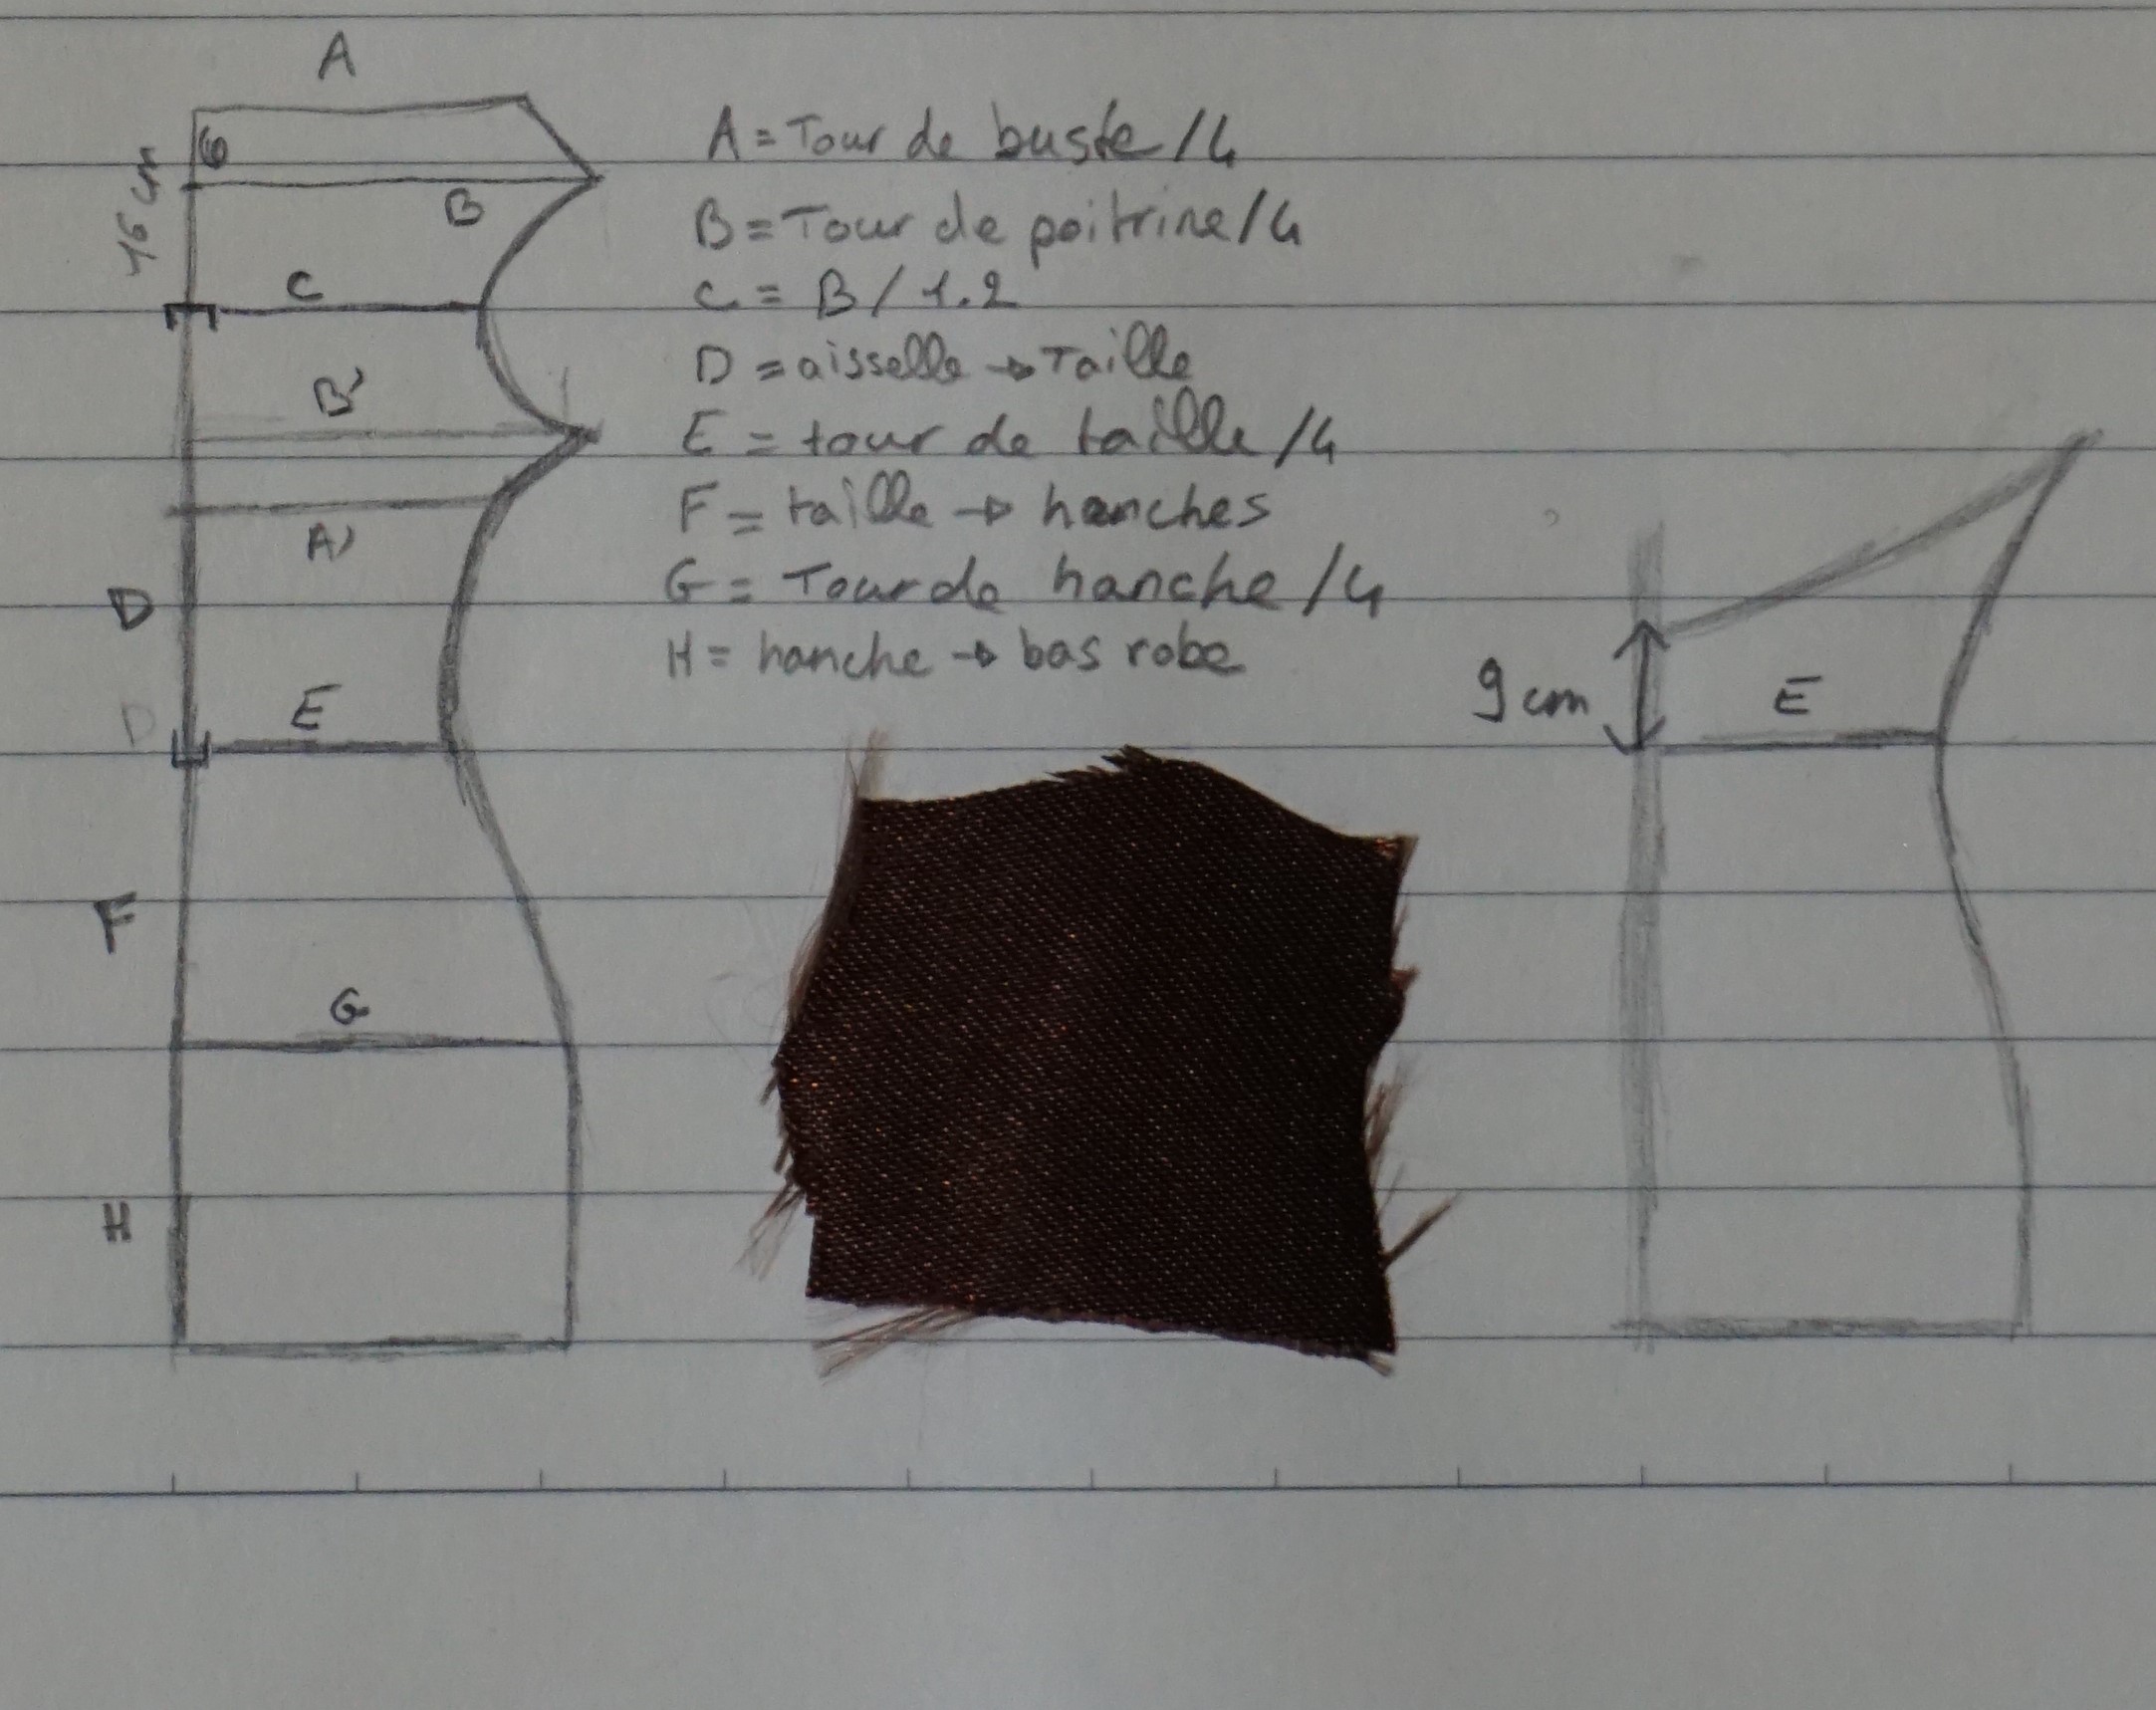 A
6
16 cm
B
C
B'
A'
D
D
E
F
G
H
A = Tour de buste /4
B = Tour de poitrine /4
C = B / 1.2
D = aisselle → Taille
E = tour de taille /4
F = taille → hanches
G = Tour de hanche /4
H = hanche → bas robe
9 cm
E